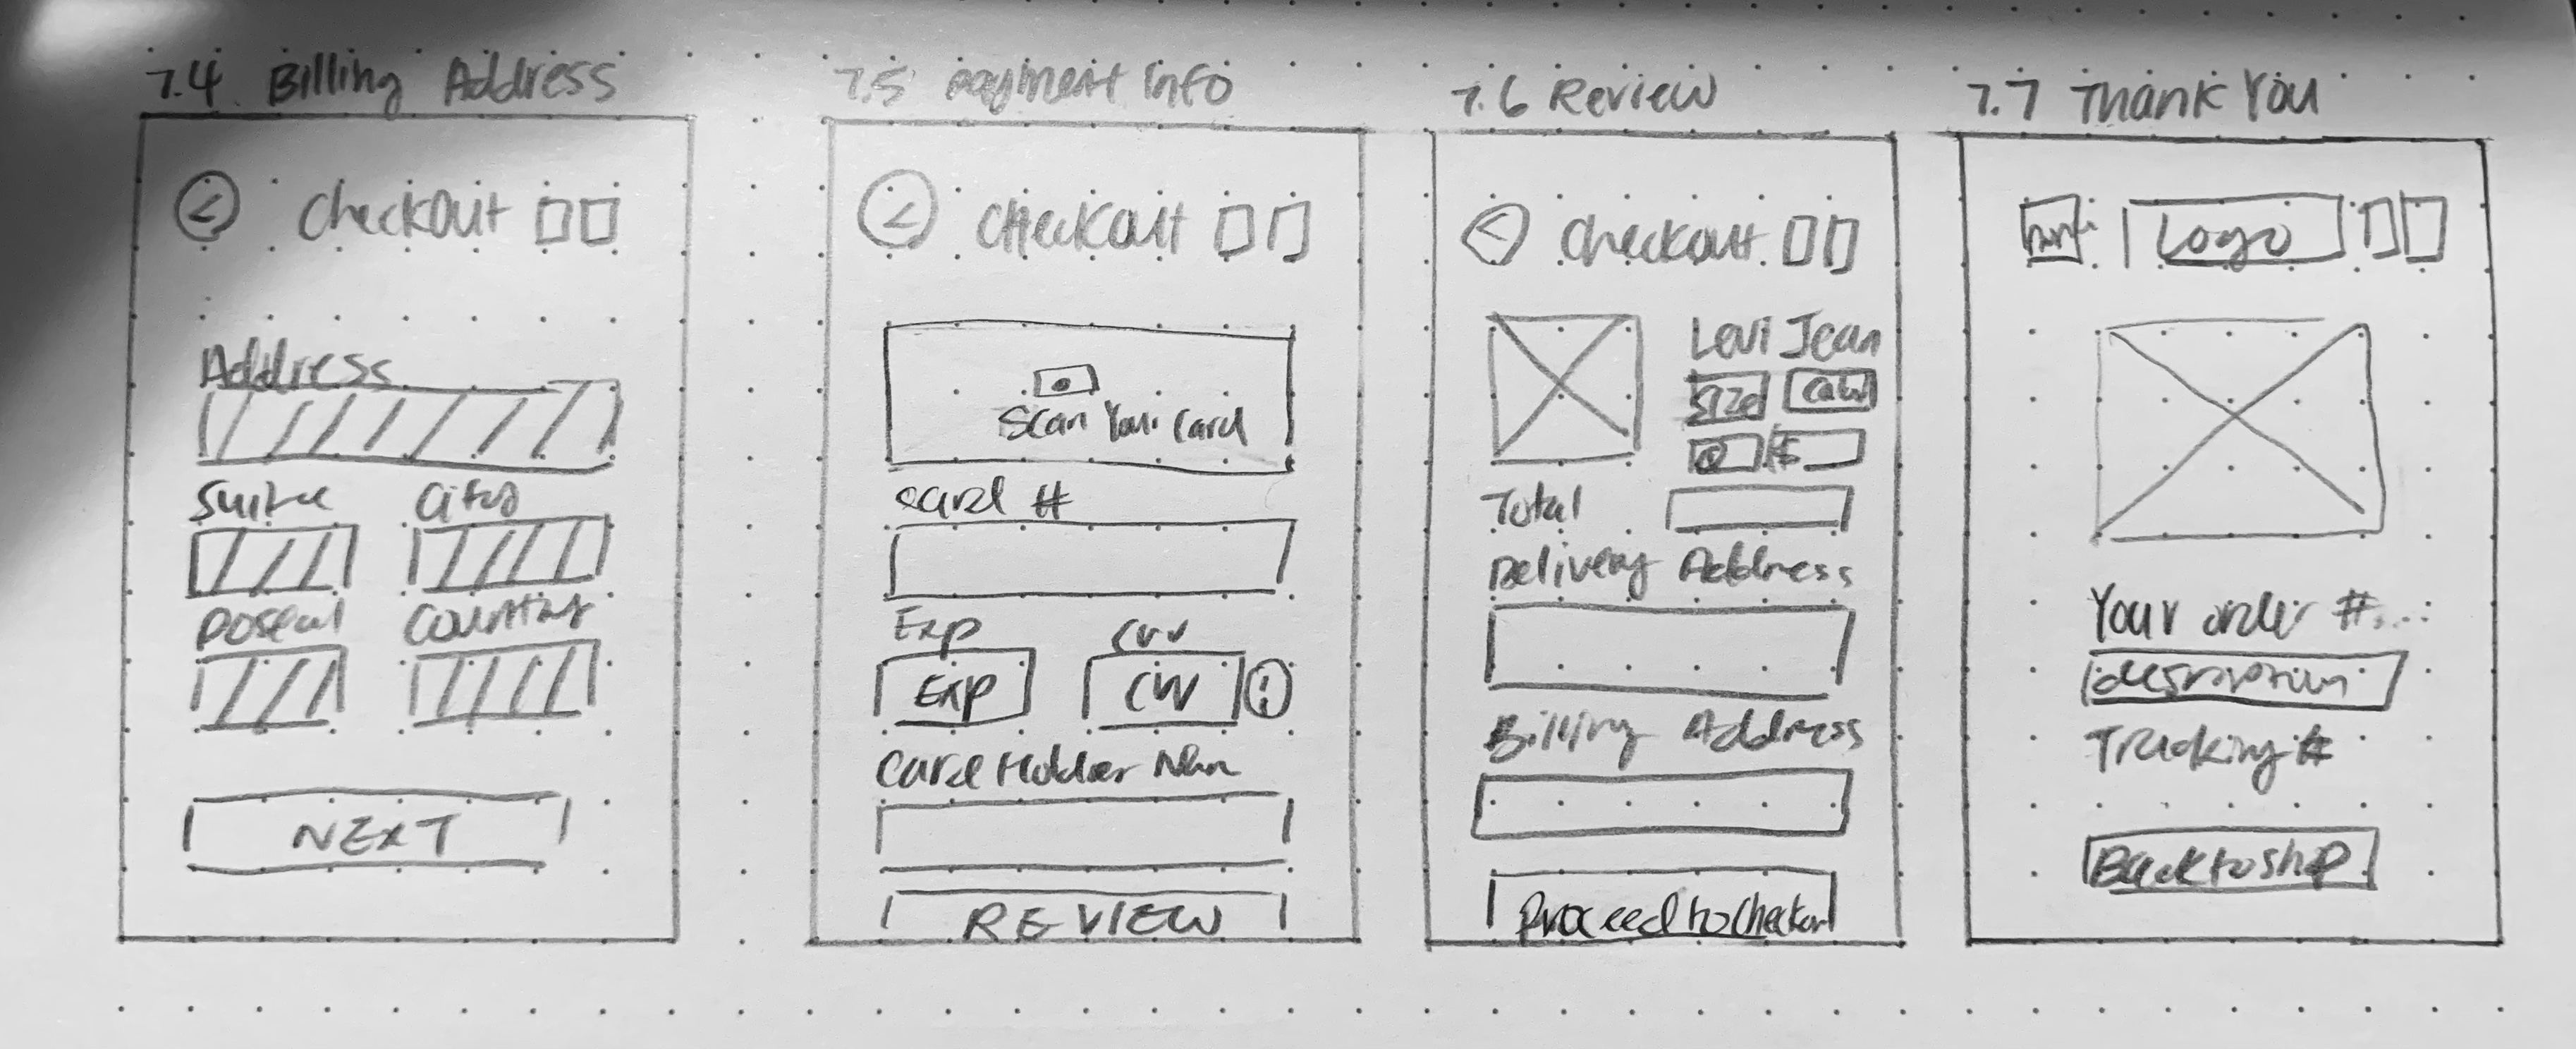 7.4 Billing Address
Checkout
Address
Suite City
Postal Country
NEXT
7.5 Payment Info
Checkout
Scan Your Card
Card #
Exp CVV
Exp CVV
Card Holder
REVIEW
7.6 Review
Checkout
Levi Jean
Size Color
Q $
Total
Delivery Address
Billing Address
Proceed to Checkout
7.7 Thank You
Logo
Your order #...
description
Tracking #
Back to shop